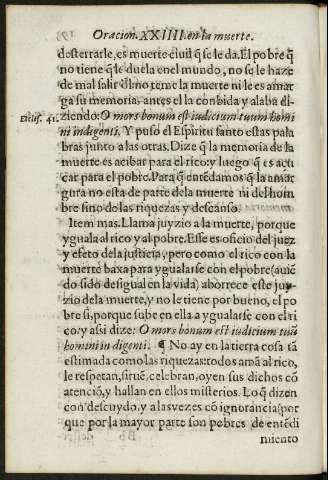 Oracion. XXIIII. en la muerte.
desterrarle, es muerte ciuil q̃ se le da. El pobre q̃
no tiene q̃ le duela en el mundo, no se le haze
de mal salir dl: no teme la muerte ni le es amar
ga su memoria, antes el la conbida y alaba di-
Eclus. 41. ziendo: O mors bonum est iudicium tuum homi
ni indigenti. Y puso el Espiritu santo estas pala
bras junto a las otras. Dize q̃ la memoria de la
muerte es acibar para el rico: y luego q̃ es açu
car para el pobre. Para q̃ entẽdamos q̃ la amar
gura no esta de parte de la muerte ni del hom
bre sino de las riquezas y descanso.
Item mas. Llama juyzio a la muerte, porque
yguala al rico y al pobre. Esse es oficio del juez
y efeto de la justicia, pero como el rico con la
muerte baxa para ygualarse con el pobre (auiẽ
do sido desigual en la vida) aborrece este juy-
zio de la muerte, y no le tiene por bueno, el po
bre si, porque sube en ella a ygualarse con el ri
co: y assi dize: O mors bonum est iudicium tuũ
homini indigenti. ¶ No ay en la tierra cosa tã
estimada como las riquezas: todos amã al rico,
le respetan, siruẽ, celebran, oyen sus dichos cõ
atenciõ, y hallan en ellos misterios. Lo q̃ dizen
con descuydo, y a las vezes cõ ignorancia (por
que por la mayor parte son pobres de entẽdi
miento